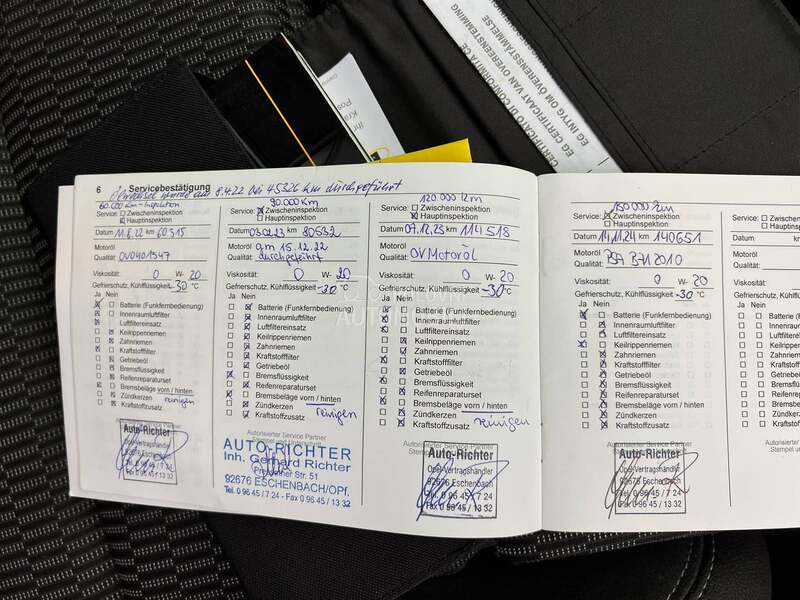 EG INTYG OM ÖVERENSSTÄMMELSE
EG CERTIFICAAT VAN OVEREENSTEMMING
CERTIFICATO DI CONFORMITÀ CE
6 Servicebestätigung
wurde am 8.4.22 bei 45326 km durchgeführt
60.000 km-Inspektion
Service: Zwischeninspektion
Hauptinspektion
Datum 11.8.22 km 60315
Motoröl
Qualität: OV0401547
Viskosität: 0 W- 20
Gefrierschutz, Kühlflüssigkeit -30 °C
Ja Nein
Batterie (Funkfernbedienung)
Innenraumluftfilter
Luftfiltereinsatz
Keilrippenriemen
Zahnriemen
Kraftstofffilter
Getriebeöl
Bremsflüssigkeit
Reifenreparaturset
Bremsbeläge vorn / hinten
Zündkerzen reinigen
Kraftstoffzusatz
Auto-Richter
Opel-Vertragshändler
92676 Eschenbach
Tel. 0 96 45 / 7 24
Fax 0 96 45 / 13 32
90.000 Km
Service: Zwischeninspektion
Hauptinspektion
Datum 03.02.23 km 80532
Motoröl am 15.12.22
Qualität: durchgeführt
Viskosität: 0 W- 20
Gefrierschutz, Kühlflüssigkeit -30 °C
Ja Nein
Batterie (Funkfernbedienung)
Innenraumluftfilter
Luftfiltereinsatz
Keilrippenriemen
Zahnriemen
Kraftstofffilter
Getriebeöl
Bremsflüssigkeit
Reifenreparaturset
Bremsbeläge vorn / hinten
Zündkerzen reinigen
Kraftstoffzusatz
Autorisierter Service Partner
AUTO-RICHTER
Inh. Gerhard Richter
Str. 51
92676 ESCHENBACH/OPf.
Tel. 0 96 45 / 7 24 - Fax 0 96 45 / 13 32
120.000 km
Service: Zwischeninspektion
Hauptinspektion
Datum 07.12.23 km 114518
Motoröl
Qualität: OV Motoröl
Viskosität: 0 W- 20
Gefrierschutz, Kühlflüssigkeit -30 °C
Ja Nein
Batterie (Funkfernbedienung)
Innenraumluftfilter
Luftfiltereinsatz
Keilrippenriemen
Zahnriemen
Kraftstofffilter
Getriebeöl
Bremsflüssigkeit
Reifenreparaturset
Bremsbeläge vorn / hinten
Zündkerzen
Kraftstoffzusatz reinigen
Autorisierter Service Partner
Auto-Richter
Opel-Vertragshändler
92676 Eschenbach
Tel. 0 96 45 / 7 24
Fax 0 96 45 / 13 32
150.000 km
Service: Zwischeninspektion
Hauptinspektion
Datum 14.11.24 km 140651
Motoröl
Qualität: PSA B71 2010
Viskosität: 0 W- 20
Gefrierschutz, Kühlflüssigkeit -30 °C
Ja Nein
Batterie (Funkfernbedienung)
Innenraumluftfilter
Luftfiltereinsatz
Keilrippenriemen
Zahnriemen
Kraftstofffilter
Getriebeöl
Bremsflüssigkeit
Reifenreparaturset
Bremsbeläge vorn / hinten
Zündkerzen
Kraftstoffzusatz
Autorisierter Service Partner
Auto-Richter
Opel-Vertragshändler
92676 Eschenbach
Tel. 0 96 45 / 7 24
Fax 0 96 45 / 13 32
Service:
Datum
Motoröl
Qualität:
Viskosität:
Gefrierschutz
Ja Nein